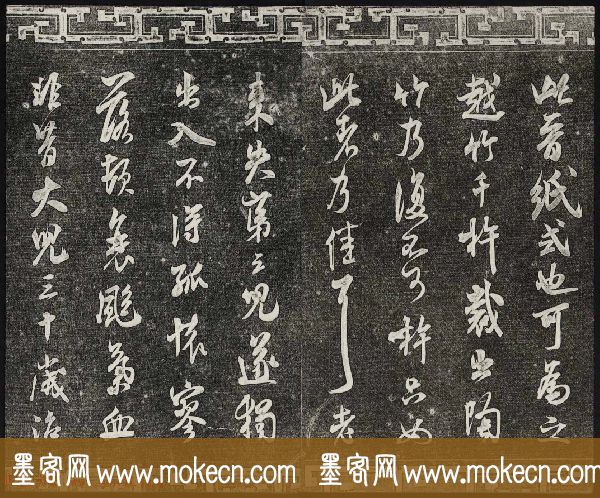 此晉紙式也可為之
越竹千杵裁出陶
竹乃復不可杵只如
此者乃佳耳老
來失第三兒遂獨
出入不得孤懷寥
落頓衰颯氣血
非昔大兒三十歲治
墨客网 www.mokecn.com 墨客网 www.mokecn.com